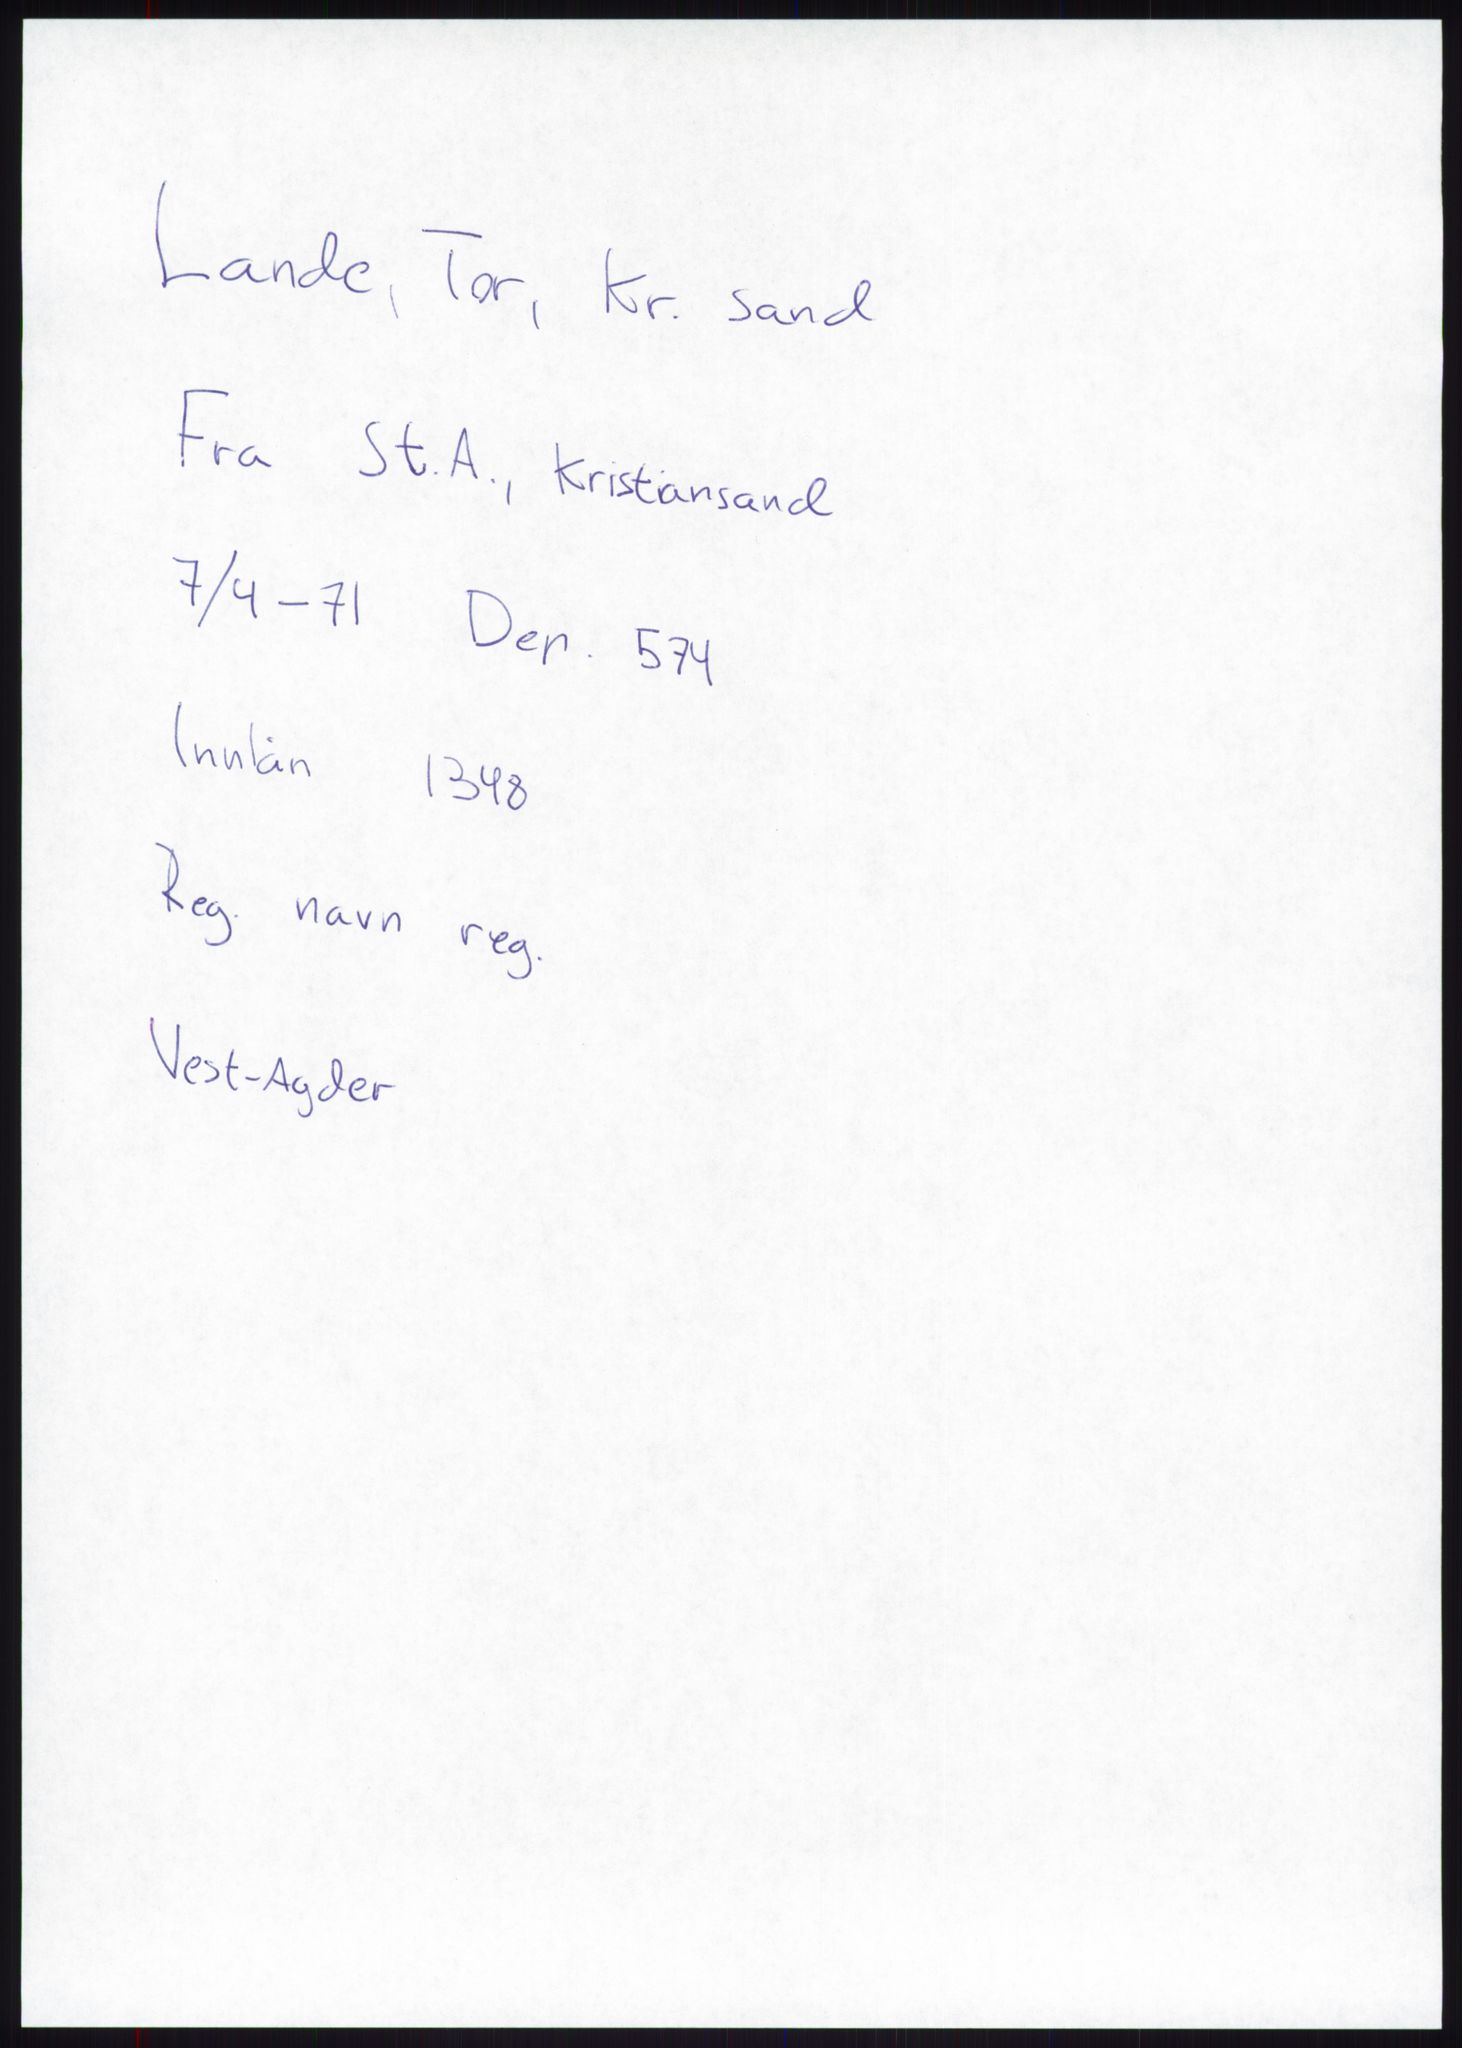 Lande, Tor, Kr. sand
Fra St.A., Kristiansand
7/4-71 Dep. 574
Innlån 1348
Reg. navn reg.
Vest-Agder